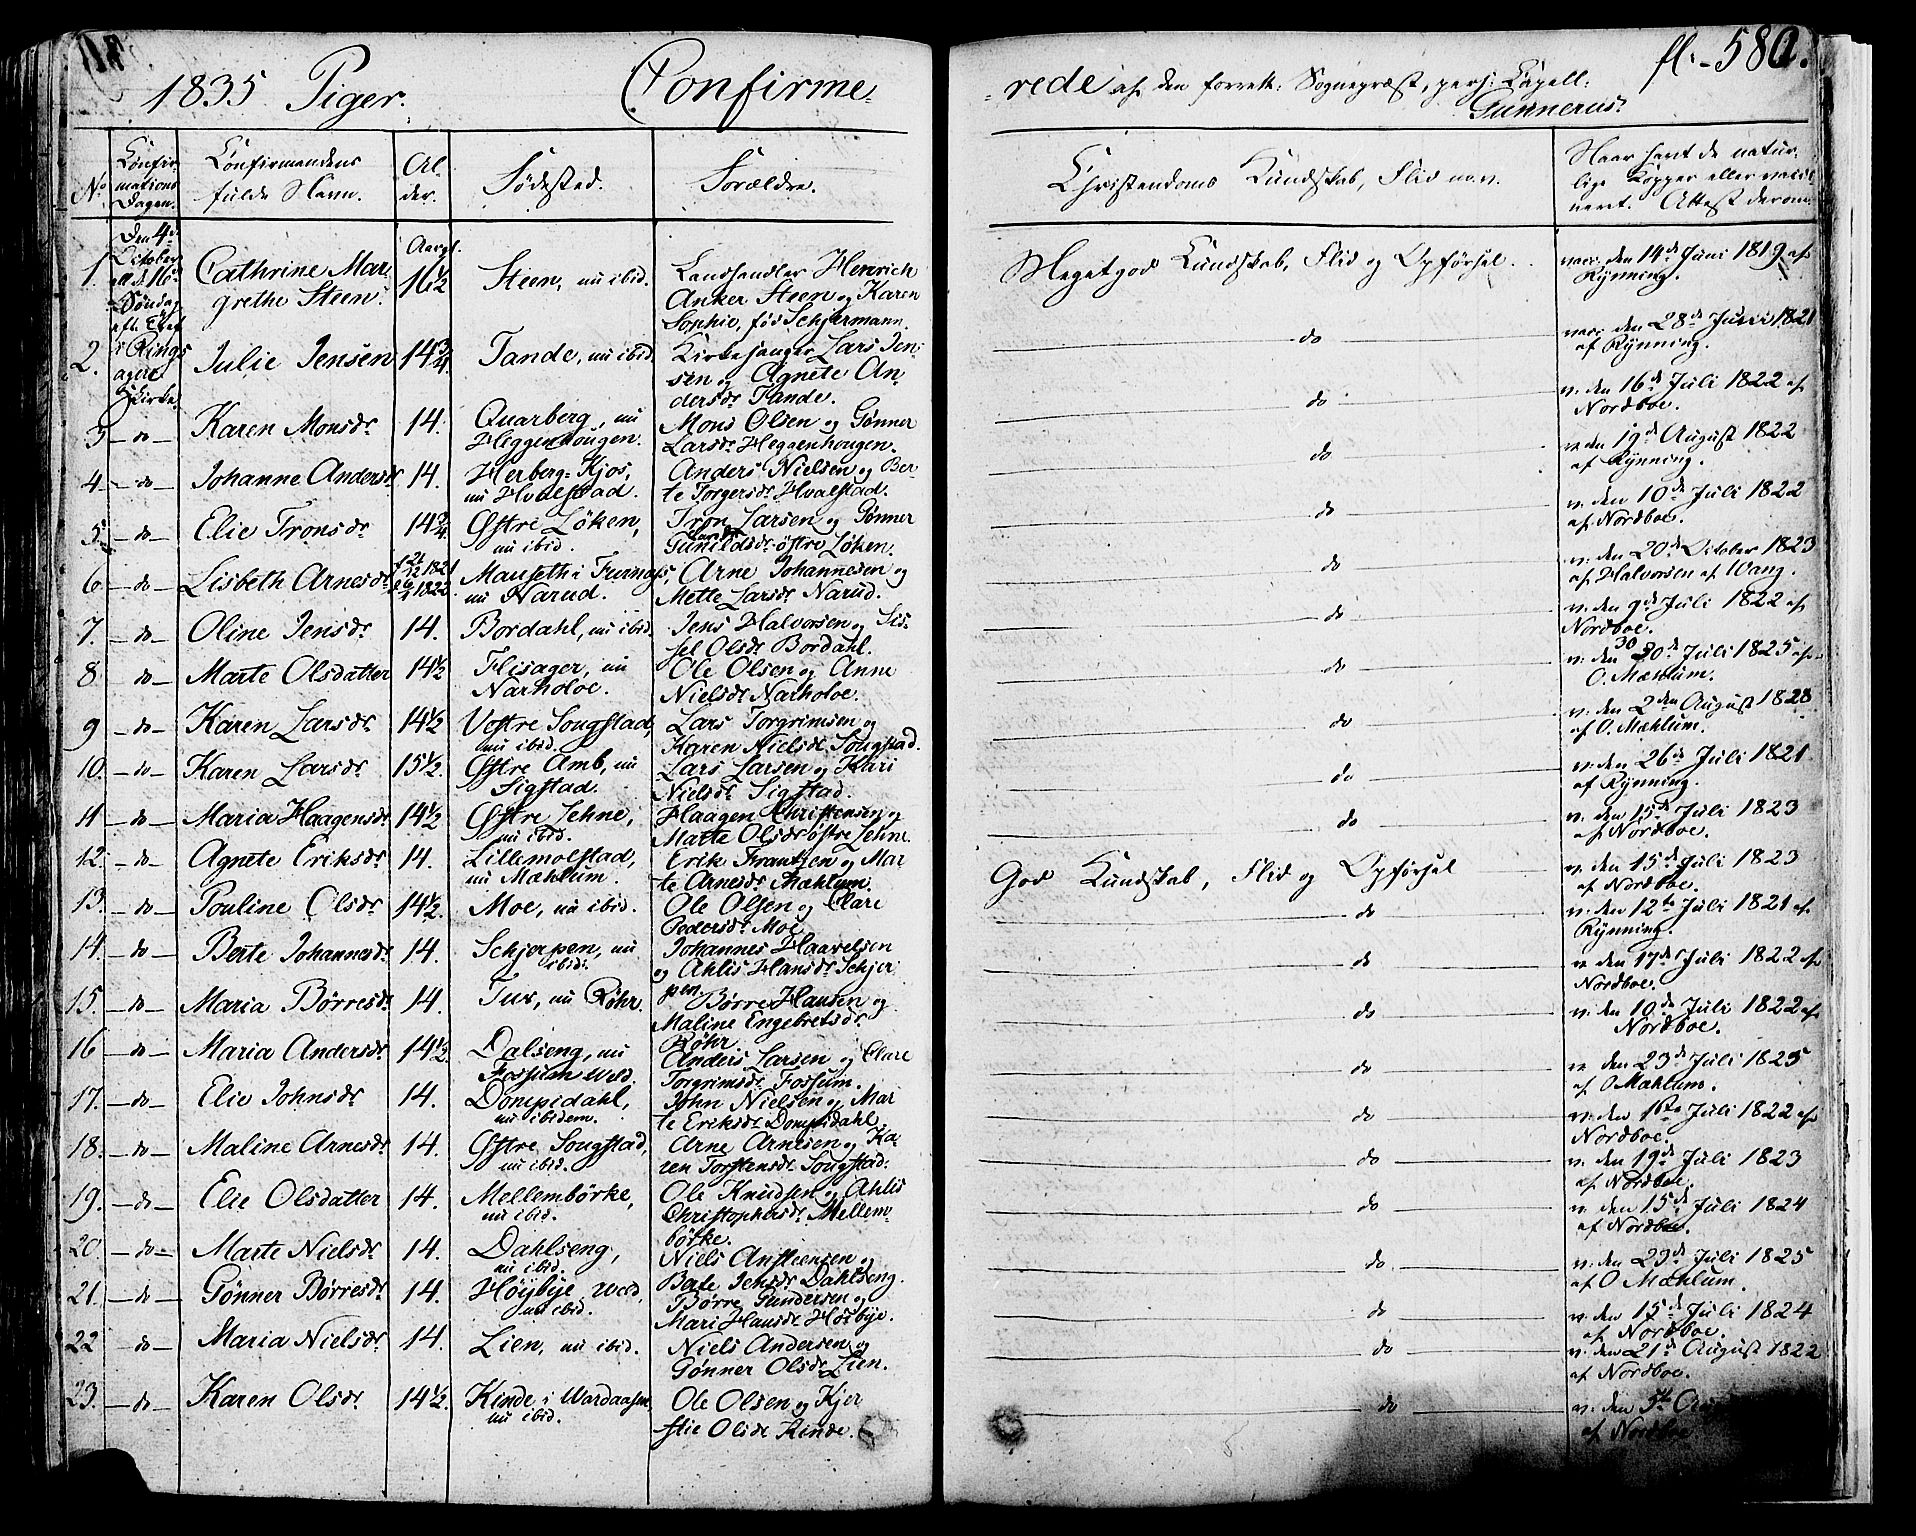 1835 Piger. Confirme-
-rede af den forrett: Sognepræst, pers: Capell: fl.-580.
Gunnerus.
No Confirmations Dagen. Confirmandens fulde Navn. Alder. Fødested. Forældre. Christendoms Kundskab, Flid m.v. Naar havt de naturlige Kopper eller vaccineret. Attest derom.
Den 4de October
1. Cathrine Margrethe Steen. Aargl. 16 1/2 Steen, nu ibid. Landhandler Henrich Anker Steen og Karen Sophie, fød Schjermann. Megetgod Kundskab, Flid og Opførsel. vacc: den 14de Juni 1819 af Rynning.
Søndag
Ringsager Kirke.
2. Julie Jensen 14 3/4 Tande, nu ibid. Kirkesanger Lars Jensen og Agnete Andersdr Tande. do vacc: den 28de Juni 1821 af Rynning.
3 do Karen Monsdr 14. Quarberg, nu Heggenhougen. Mons Olsen og Gønner Larsdr Heggenhougen. do v. den 16de Juli 1822 af Nordboe.
4 do Johanne Andersdr 14. Herberg-Kjos, nu Hvalstad. Anders Nielsen og Berte Torgersdr Hvalstad. do v. den 19de August 1822 af Rynning.
5 do Elie Tronsdr 14 3/4 Østre Løken, nu ibid. Tron Larsen og Gønner Gunildsdr østre Løken. do v. den 10de Juli 1822 af Nordboe.
6 do Lisbeth Arnesdr Mauseth i Furnæs, nu Narud. Arne Johannesen og Mette Larsdr Narud. do v. den 20de October 1823 af Halvorsen af Wang.
7. do Oline Jensdr 14. Bordahl, nu ibid. Jens Halvorsen og Sissel Olsdr Bordahl. do v: den 9de Juli 1822 af Nordboe.
8 do Marte Olsdatter 14 1/2 Flisager, nu Narholoe. Ole Olsen og Anne Nielsdr Narholoe. do v: den 30 Juli 1825 af O. Mæhlum.
9 do Karen Larsdr 14 1/2 Vestre Sougstad, nu ibid. Lars Torgrimsen og Karen Nielsdr Sougstad. do v: den 2den August 1823 af O. Mæhlum.
10. do Karen Larsdr 15 1/2. Østre Amb, nu Sigstad. Lars Larsen og Kari Nielsdr Sigstad. do v: den 26de Juli 1821 af Rynning.
11 do Maria Haagensdr 14 1/2 Østre Sehne, nu ibid. Haagen Christensen og Marte Olsdr østre Sehne. do v. den 15de Juli 1823 af Nordboe.
12. do Agnete Eriksdr 14. Lillemolstad, nu Mæhlum. Erik Frantzen og Marte Arnesdr Mæhlum. God Kundskab, Flid og Opførsel v. den 15de Juli 1823 af Nordboe.
13. do Pouline Olsdr 14 1/2. Moe, nu ibid. Ole Olsen og Clare Pedersdr Moe. do v. den 12te Juli 1821 af Rynning.
14. do Berte Johannesdr 14. Schjerpen, nu ibid. Johannes Haavelsen og Ahlis Hansdr Schjerpen. do v. den 17de Juli 1822 af Nordboe.
15. do Maria Børresdr 14. Tux, nu Røhr. Børre Hansen og Maline Engebretsdr Røhr. do v. den 10de Juli 1822 af Nordboe.
16 do Maria Andersdr 14 1/2. Dalseng, nu Fossum Weld. Anders Larsen og Clare Torgrimsdr Fossum. do v. den 23de Juli 1825 af O Mæhlum.
17. do Elie Johnsdr 14. Dompidahl, nu ibidem. John Nielsen og Marte Eriksdr Dompidahl. do v: den 16te Juli 1822 af Nordboe.
18. do Maline Arnesdr 14. Østre Sougstad, nu ibid. Arne Arnesen og Karen Torstensdr Sougstad. do v. den 19de Juli 1823 af Nordboe.
19. do Elie Olsdatter 14. Mellembørke, nu ibid. Ole Knudsen og Ahlis Christophersdr Mellembørke. do v. den 15de Juli 1824 af Nordboe.
20. do Marte Nielsdr 14. Dahlseng, nu ibid. Niels Anstensen og Berte Jensdr Dahlseng. do v. den 23de Juli 1825 af O Mæhlum.
21. do Gønner Børresdr 14. Høybye Weld, nu ibid. Børre Gundersen og Mari Hansdr Høybye. do v. den 15de Juli 1824 af Nordboe.
22 do Maria Nielsdr 14. Lien, nu ibid. Niels Andersen og Gønner Olsdr Lien. do v: den 21de August 1822 af Nordboe.
23. do Karen Olsdr 14 1/2. Kinde i Wardaasen, nu ibid. Ole Olsen og Kjerstie Olsdr Kinde. do v: den 5te af Nordboe